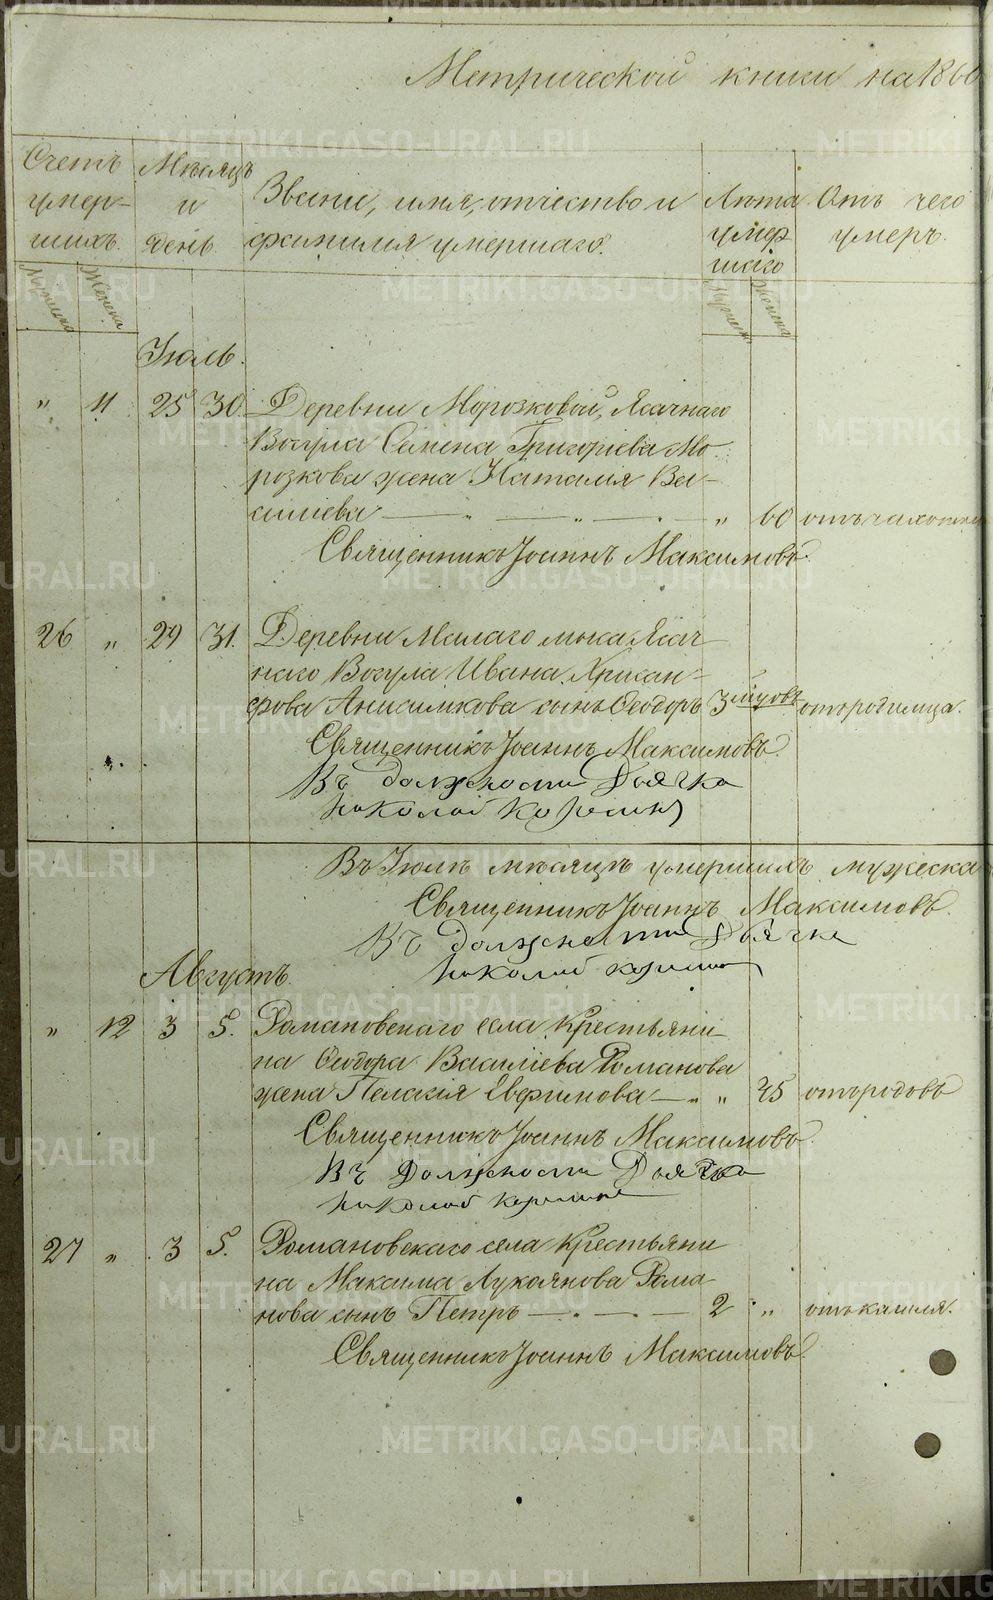 Метрической книги на 1860
Счетъ умер-шихъ.
Мѣсяцъ и день
Званіе, имя, отчество и
фамилия умершаго.
Лѣта умер шаго
Отъ чего умеръ.
Мужеска
Женска
Мужеск.
Женска
Июль.
" 11 25 30. Деревни Морозковой, Ясачнаго
Вогула Семена Григоріева Мо-
розкова жена Наталия Ва-
силіева — " — " — " 60 отъ чахотки
Священникъ Іоаннъ Максимовъ.
26 " 29 31. Деревни Малаго мыка Ясач
наго Вогула Ивана Хрисан-
фова Анисимкова сынъ Ѳеодоръ 3 мцовъ отъ родимца.
Священникъ Іоаннъ Максимовъ.
Въ должности Дьячка
Николай
Въ Июлѣ мѣсяцѣ умершихъ мужеска
Священникъ Іоаннъ Максимовъ.
Въ должности Дьячка
Николай
Августъ.
" 12 3 5. Романовскаго села Крестьяни
на Ѳеодора Василіева Романова
жена Пелагія Евфимова — " " 45 отъ родовъ
Священникъ Іоаннъ Максимовъ.
Въ Должности Дьячка
Николай
27 " 3 5. Романовскаго села Крестьяни
на Максима Лукоянова Рома
нова сынъ Петръ — " — " — 2 " отъ кашля.
Священникъ Іоаннъ Максимовъ.
METRIKI.GASO-URAL.RU